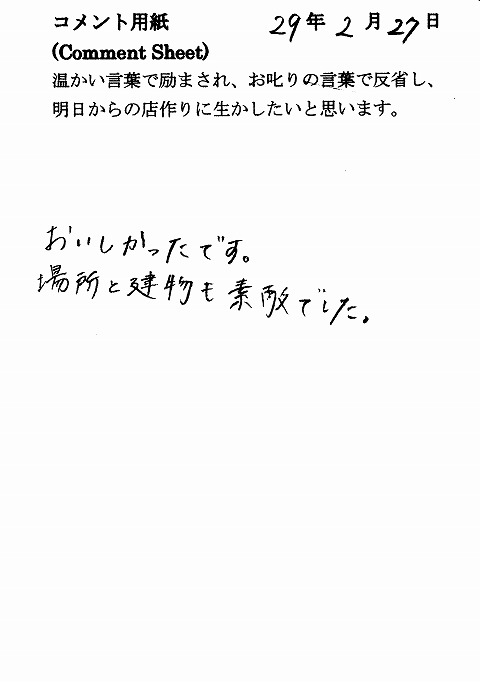 コメント用紙 29年2月27日
(Comment Sheet)
温かい言葉で励まされ、お叱りの言葉で反省し、
明日からの店作りに生かしたいと思います。
おいしかったです。
場所と建物も素敵でした。